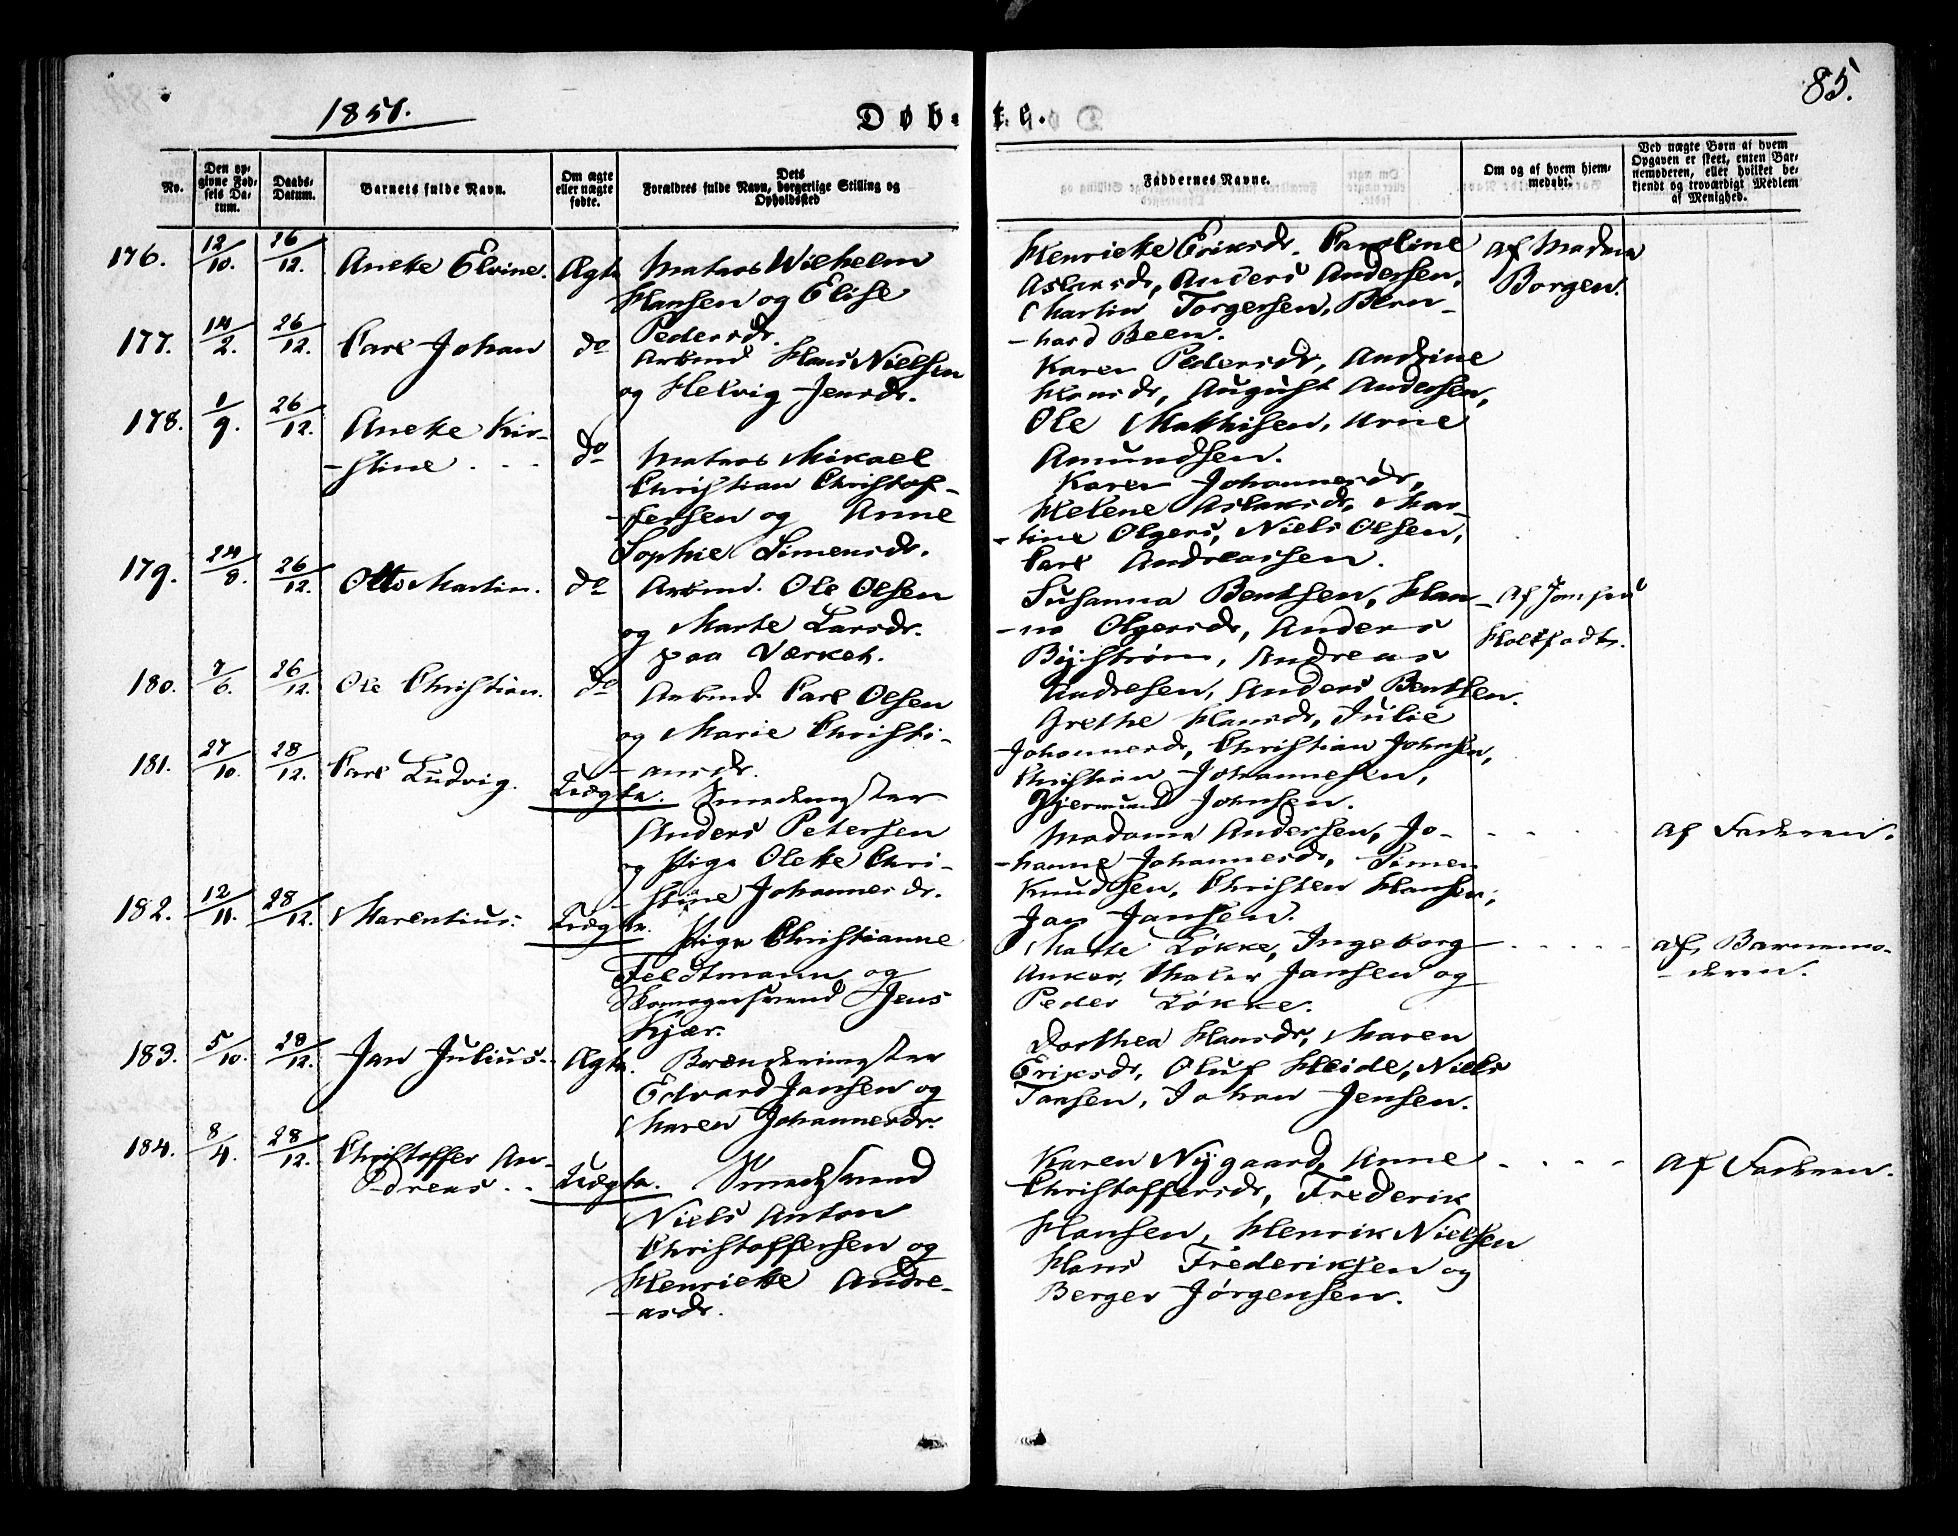 1851.
Døbte.
85.
No.
Den op-
givne Fød-
sels Da-
tum.
Daabs-
Datum.
Barnets fulde Navn.
Om ægte
eller uægte
fødte.
Dets
Forældres fulde Navn, borgerlige Stilling og
Opholdssted
Faddernes Navne.
Om og af hvem hjem-
medøbt.
Ved uægte Børn af hvem
Opgaven er skeet, enten Bar-
nemoderen, eller hvilket be-
kjendt og troværdigt Medlem
af Menighed.
176. 12/10. 26/12. Anette Elvine. Ægte
Matros Wilhelm
Hansen og Elise
Pedersdr.
Henriette Eriksdr. Caroline
Aslaksdr, Anders Andersen,
Martin Torgersen, Bern-
-hard Been.
Af Madam
Borgen.
177. 14/2. 26/12. Carl Johan do
Arbmd Hans Nielsen
og Helvig Jensdr.
Karen Pedersdr, Andrine
Hansdr, August Andersen,
Ole Mathisen, Arne
Amundsen.
178. 1/9. 26/12. Anette Kir-
-stine do
Matros Mikael
Christian Christof-
-fersen og Anne
Sophie Simensdr.
Karen Johannesdr,
Helene Aslaksdr, Mar-
-tine Olgers, Niels Olsen,
Carl Andreassen.
179. 24/8. 26/12. Otto Martin. do
Arbmd. Ole Olsen
og Marte Larsdr.
paa Værket.
Susanna Bentsen, Han-
-na Olgersdr, Anders
Bÿstrøm, Andreas
Andresen, Anders Bentsen.
Af
180. 7/6. 26/12. Ole Christian. do
Arbmd Carl Olsen
og Marie Christi-
-ansdr.
Grethe Hansdr, Julie
Johannesdr, Christian Johnsen,
Christian Johannesen,
Gjermund Johnsen.
181. 27/10. 28/12. Carl Ludvig. Uægte.
Smedmester
Anders Petersen
og Pige Olette Chri-
-stine Johannesdr.
Madame Andersen, Jo-
-hanne Johannesdr, Simen
Knudsen, Christen Hansen,
Jan Jansen.
Af Faderen.
182. 12/11. 28/12. Marentius. Uægte.
Pige Christianne
Feldtmann og
Skomagersvend Jens
Kjær.
Marte Løkke, Ingeborg
Anker, Maler Jansen og
Peder Løkke.
af Barnemo-
-deren.
183. 5/10. 28/12. Jan Julius. Ægte.
Brændemester
Edvard Jansen og
Maren Johannesdr.
Dorthea Hansdr, Maren
Eriksdr, Oluf Heide, Niels
Jansen, Johan Jensen.
184. 8/4. 28/12. Christoffer An-
-dreas Uægte.
Smedsvend
Niels Anton
Christoffersen og
Henriette Andre-
-asdr.
Karen Nÿgaard, Anne
Christoffersdr, Frederik
Hansen, Henrik Nielsen
Hans Frederiksen og
Berger Jørgensen.
Af Faderen.